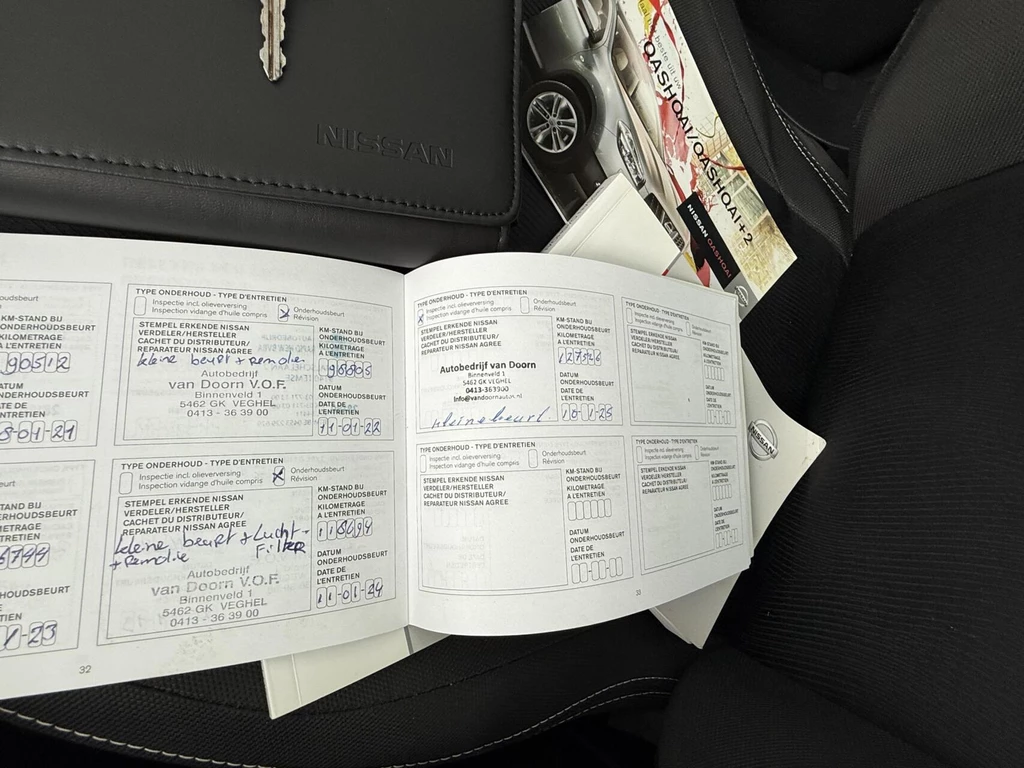 NISSAN
beste uit uw
QASHQAI/QASHQAI+2
NISSAN QASHQAI
NISSAN
KM-STAND BIJ
ONDERHOUDSBEURT
KILOMETRAGE
A L'ENTRETIEN
90512
DATUM
ONDERHOUDSBEURT
DATE DE
L'ENTRETIEN
-01-21
TYPE ONDERHOUD - TYPE D'ENTRETIEN
Inspectie incl. olieverversing
Inspection vidange d'huile compris
Onderhoudsbeurt
Révision
STEMPEL ERKENDE NISSAN
VERDELER/HERSTELLER
CACHET DU DISTRIBUTEUR/
REPARATEUR NISSAN AGREE
kleine beurt + remolie
Autobedrijf
van Doorn V.O.F.
Binnenveld 1
5462 GK VEGHEL
0413 - 36 39 00
KM-STAND BIJ
ONDERHOUDSBEURT
KILOMETRAGE
A L'ENTRETIEN
DATUM
ONDERHOUDSBEURT
DATE DE
L'ENTRETIEN
11-01-22
ONDERHOUDSBEURT
-23
TYPE ONDERHOUD - TYPE D'ENTRETIEN
Inspectie incl. olieverversing
Inspection vidange d'huile compris
Onderhoudsbeurt
Révision
STEMPEL ERKENDE NISSAN
VERDELER/HERSTELLER
CACHET DU DISTRIBUTEUR/
REPARATEUR NISSAN AGREE
kleine beurt + Lucht-
+ remolie Filter
Autobedrijf
van Doorn V.O.F.
Binnenveld 1
5462 GK VEGHEL
0413 - 36 39 00
KM-STAND BIJ
ONDERHOUDSBEURT
KILOMETRAGE
A L'ENTRETIEN
DATUM
ONDERHOUDSBEURT
DATE DE
L'ENTRETIEN
11-01-24
32
TYPE ONDERHOUD - TYPE D'ENTRETIEN
Inspectie incl. olieverversing
Inspection vidange d'huile compris
Onderhoudsbeurt
Révision
STEMPEL ERKENDE NISSAN
VERDELER/HERSTELLER
CACHET DU DISTRIBUTEUR/
REPARATEUR NISSAN AGREE
Autobedrijf van Doorn
Binnenveld 1
5462 GK VEGHEL
0413-363900
Info@vandoornautos.nl
kleine beurt
KM-STAND BIJ
ONDERHOUDSBEURT
KILOMETRAGE
A L'ENTRETIEN
DATUM
ONDERHOUDSBEURT
DATE DE
L'ENTRETIEN
10-1-25
TYPE ONDERHOUD - TYPE D'ENTRETIEN
STEMPEL ERKENDE NISSAN
VERDELER/HERSTELLER
CACHET DU DISTRIBUTEUR/
REPARATEUR NISSAN AGREE
KM-STAND BIJ
ONDERHOUDSBEURT
KILOMETRAGE
A L'ENTRETIEN
DATUM
ONDERHOUDSBEURT
DATE DE
L'ENTRETIEN
TYPE ONDERHOUD - TYPE D'ENTRETIEN
Inspectie incl. olieverversing
Inspection vidange d'huile compris
Onderhoudsbeurt
Révision
STEMPEL ERKENDE NISSAN
VERDELER/HERSTELLER
CACHET DU DISTRIBUTEUR/
REPARATEUR NISSAN AGREE
KM-STAND BIJ
ONDERHOUDSBEURT
KILOMETRAGE
A L'ENTRETIEN
DATUM
ONDERHOUDSBEURT
DATE DE
L'ENTRETIEN
TYPE ONDERHOUD - TYPE D'ENTRETIEN
STEMPEL ERKENDE NISSAN
VERDELER/HERSTELLER
CACHET DU DISTRIBUTEUR/
REPARATEUR NISSAN AGREE
KM-STAND BIJ
ONDERHOUDSBEURT
KILOMETRAGE
A L'ENTRETIEN
DATUM
ONDERHOUDSBEURT
DATE DE
L'ENTRETIEN
33